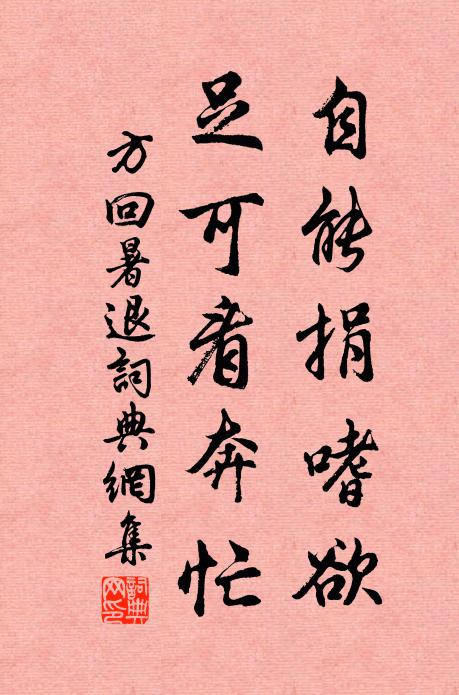 自能捐嗜欲
足可看奔忙
方回暑退詞典網集
詞典網印